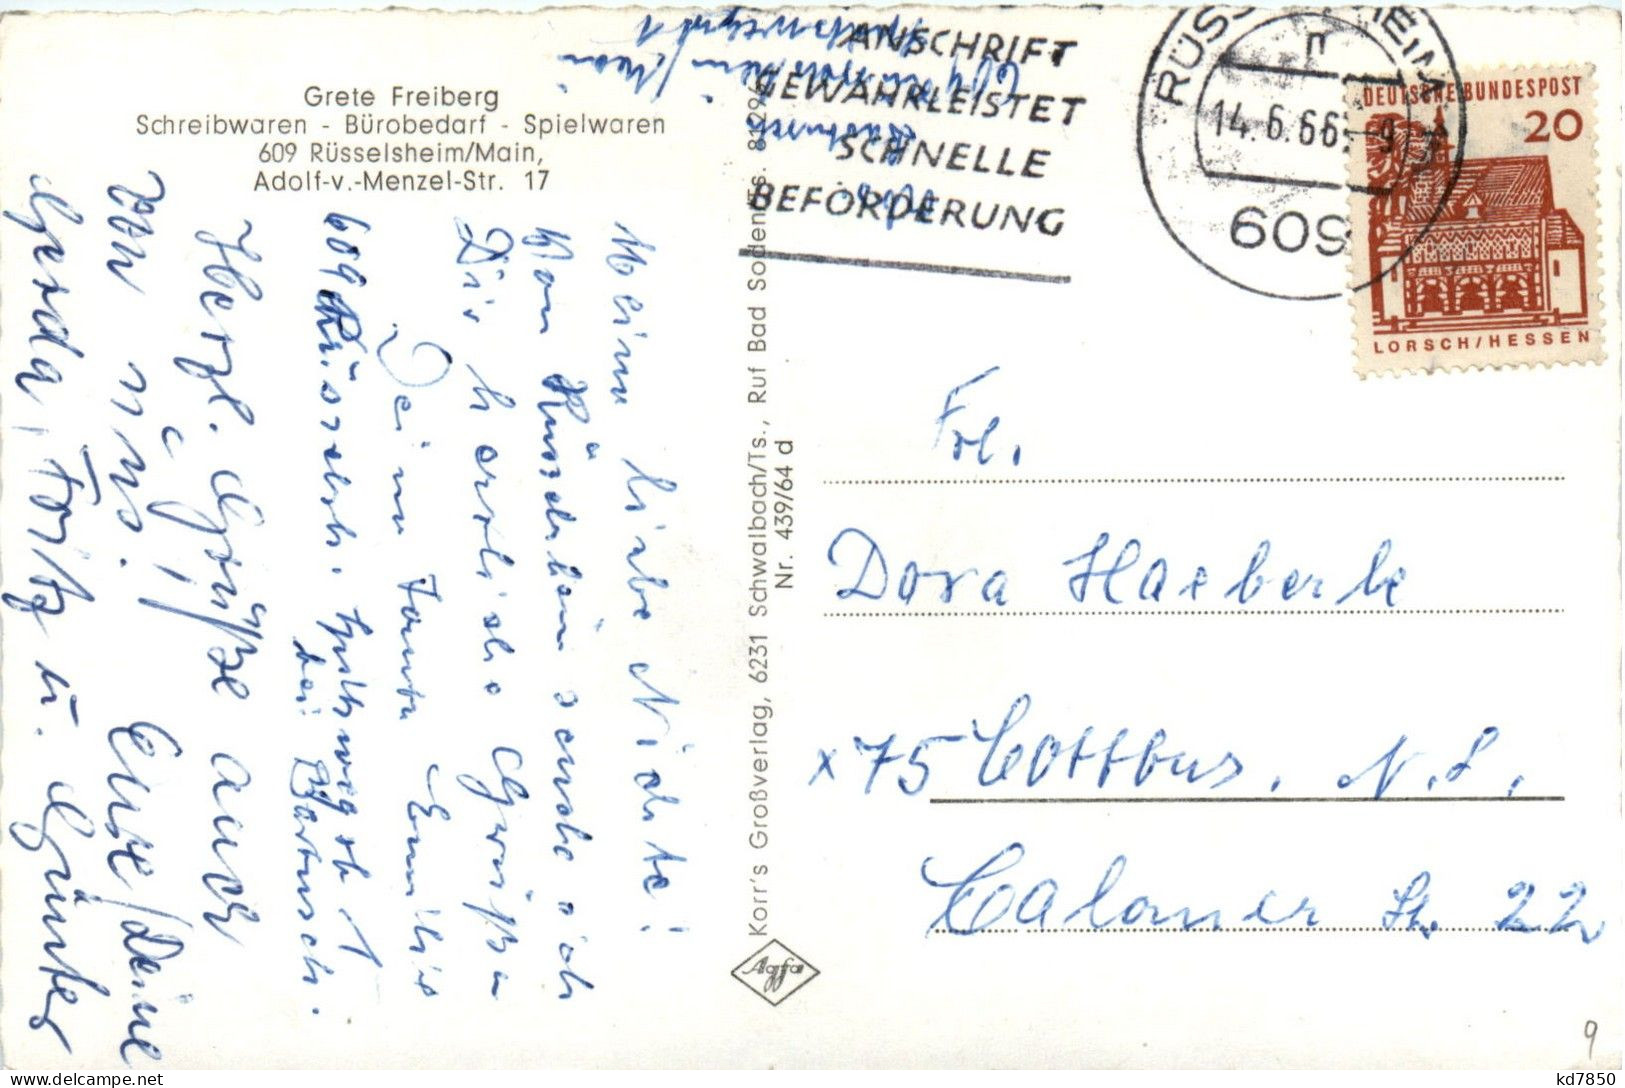 Grete Freiberg
Schreibwaren - Bürobedarf - Spielwaren
609 Rüsselsheim/Main,
Adolf-v.-Menzel-Str. 17
Meine liebe Nichte!
Von Rüsselsheim sende ich
Dir herzliche Grüße
Deine Tante Emilie
609 Rüsselsh.
bei Bartusch.
Herzl. Grüße auch
von uns! Eure / Deine
Gerda, Fritz u. Günter
Korr's Großverlag, 6231 Schwalbach/Ts., Ruf Bad Soden/Ts. 81296
Nr. 439/64 d
Agfa
ANSCHRIFT
GEWÄHRLEISTET
SCHNELLE
BEFÖRDERUNG
14.6.66
609
DEUTSCHE BUNDESPOST
20
LORSCH/HESSEN
Frl.
Dora Haeberle
x 75 Cottbus. N.L.
Calauer Str. 22
9
kd7850